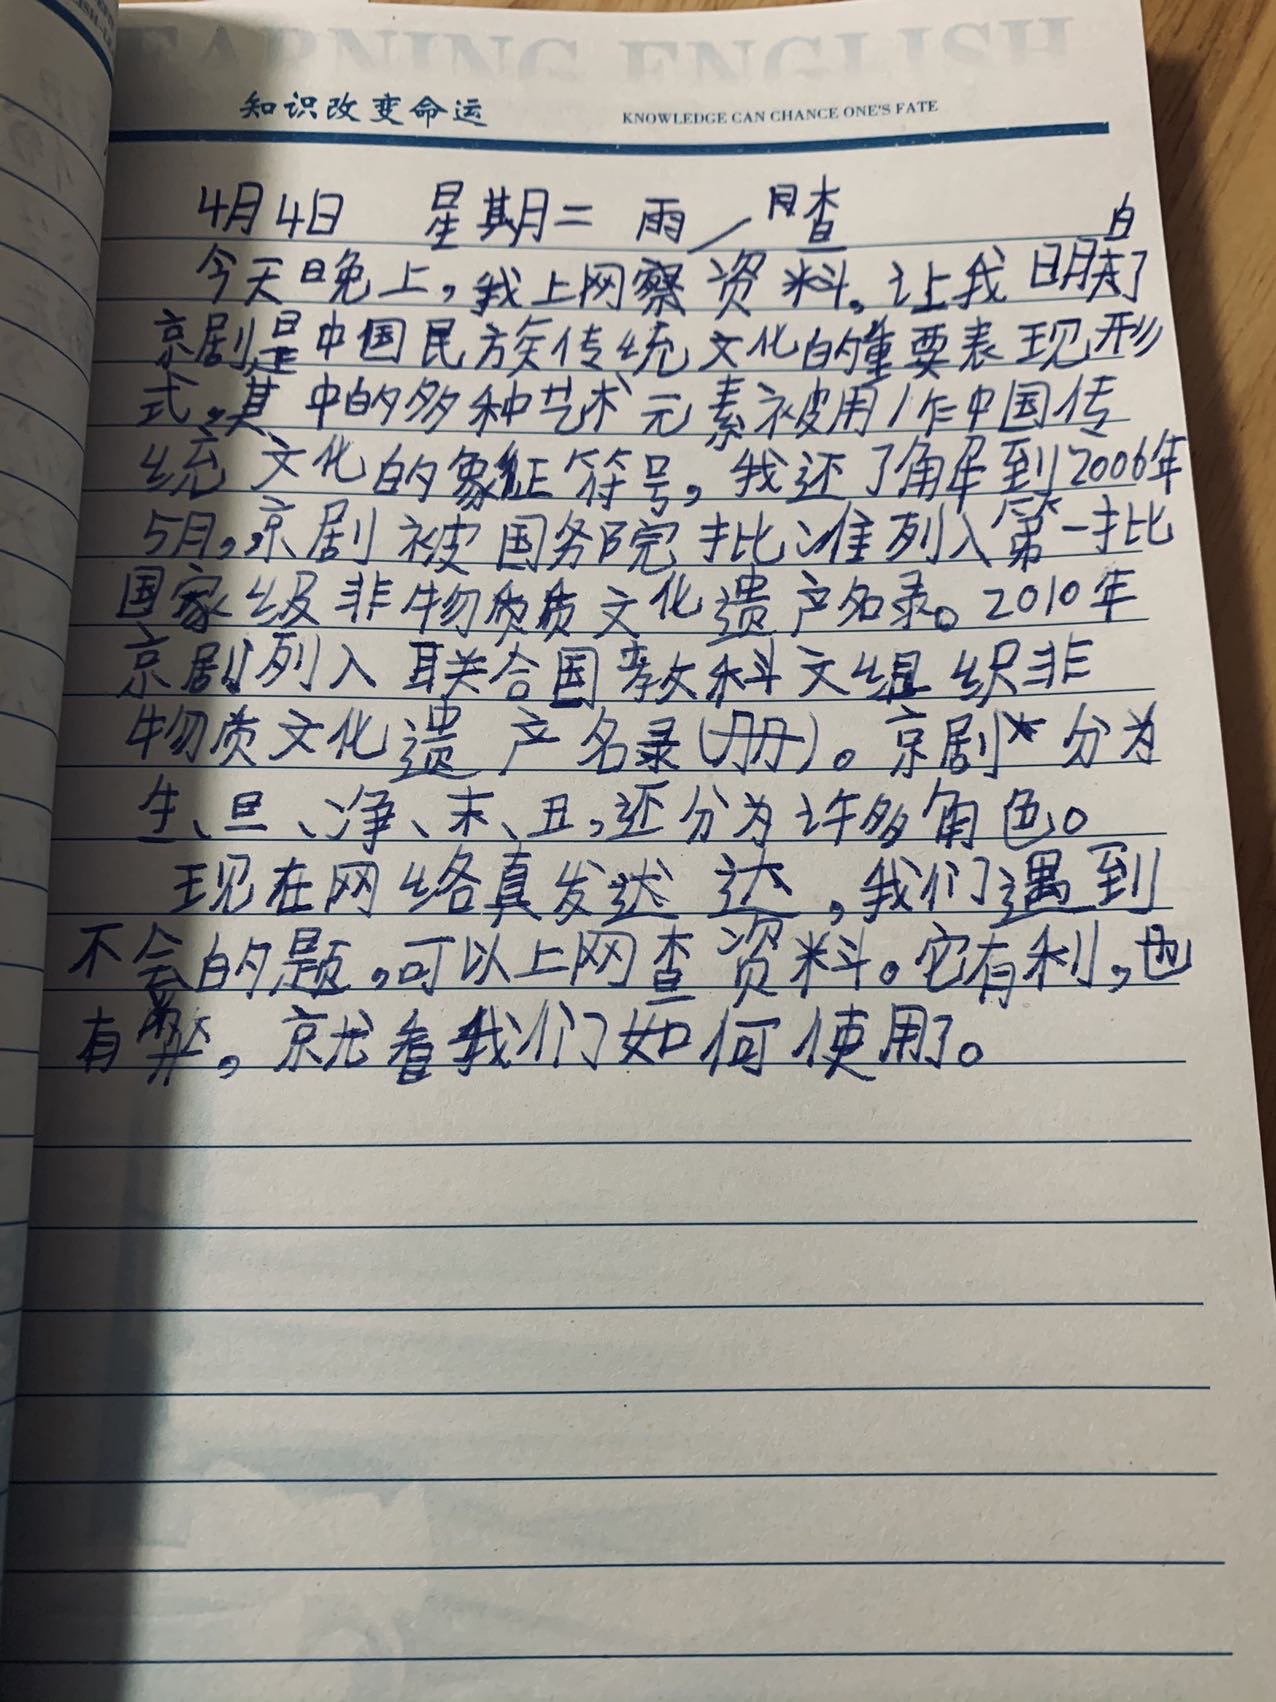 LEARNING ENGLISH
知识改变命运
KNOWLEDGE CAN CHANCE ONE'S FATE
4月4日 星期二 雨/
白
今天晚上,我上网察资料。让我明了
京剧是中国民族传统文化的重要表现形
式。其中的多种艺术元素被用作中国传
统文化的象征符号,我还了解到2006年
5月,京剧被国务院批准列入第一批
国家级非物质质文化遗产名录。2010年
京剧列入联合国教科文组织非
物质文化遗产名录(册)。京剧分为
生、旦、净、末、丑,还分为许多角色。
现在网络真发达达,我们遇到
不会的题,可以上网查资料。它有利,也
有弊。京尤看我们如何使用了。